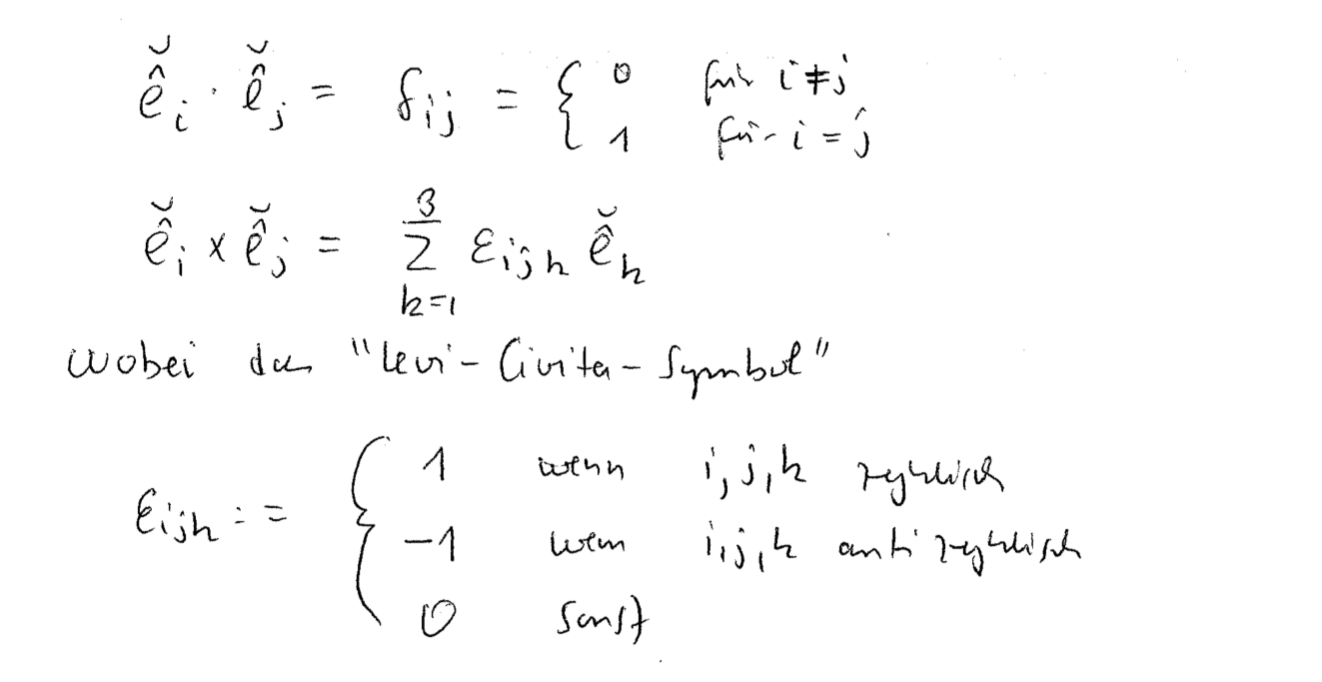 ĕ̂ᵢ · ĕ̂ⱼ = δᵢⱼ = { 0 für i ≠ j
1 für i = j
ĕ̂ᵢ × ĕ̂ⱼ = ∑_{k=1}^{3} ε_{ijk} ĕ̂_k
wobei das "Levi-Civita-Symbol"
ε_{ijk} := { 1 wenn i, j, k zyklisch
-1 wenn i, j, k antizyklisch
0 sonst